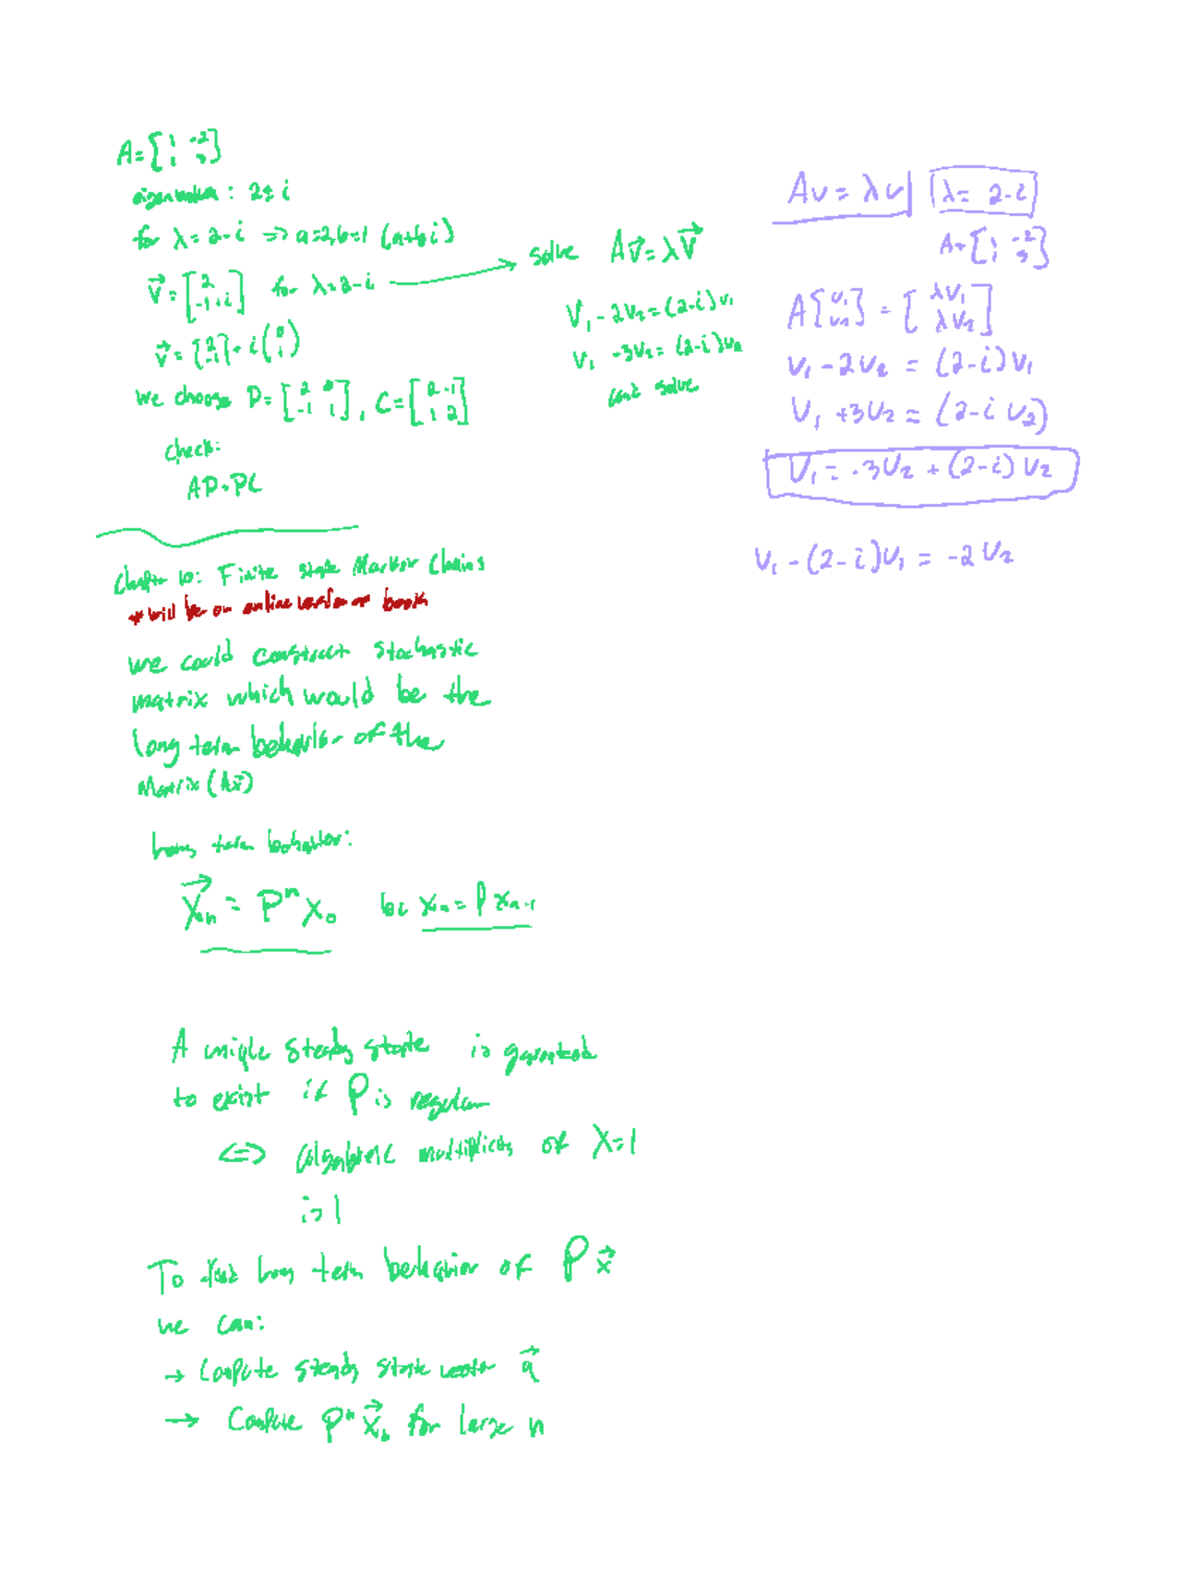 A = [1 -2; 1 3]
eigenvalues : 2 ± i
for λ = 2-i => a=2, b=1 (a+bi)
v = [2; -1+i] for λ=2-i → solve Av = λv
v = [2; -1] + i(0; 1)
we choose P = [2 0; -1 1], C = [2 -1; 1 2]
check:
AP = PC
V₁ - 2V₂ = (2-i)V₁
V₁ + 3V₂ = (2-i)V₂
and solve
Av = λv | λ = 2-i
A = [1 -2; 1 3]
A[v₁; v₂] = [λv₁; λv₂]
V₁ - 2V₂ = (2-i)V₁
V₁ + 3V₂ = (2-i V₂)
V₁ = -3V₂ + (2-i) V₂
V₁ - (2-i)V₁ = -2V₂
Chapter 10: Finite state Markov Chains
* will be on online version of book
we could construct stochastic
matrix which would be the
long term behavior of the
Matrix (Ax)
Long term behavior:
Xₙ = Pⁿ X₀ bc Xₙ = P Xₙ₋₁
A unique steady state is guaranteed
to exist if P is regular
<=> algebraic multiplicity of λ=1
is 1
To find long term behavior of Px
we can:
→ Compute steady state vector q
→ Compute Pⁿ X₀ for large n